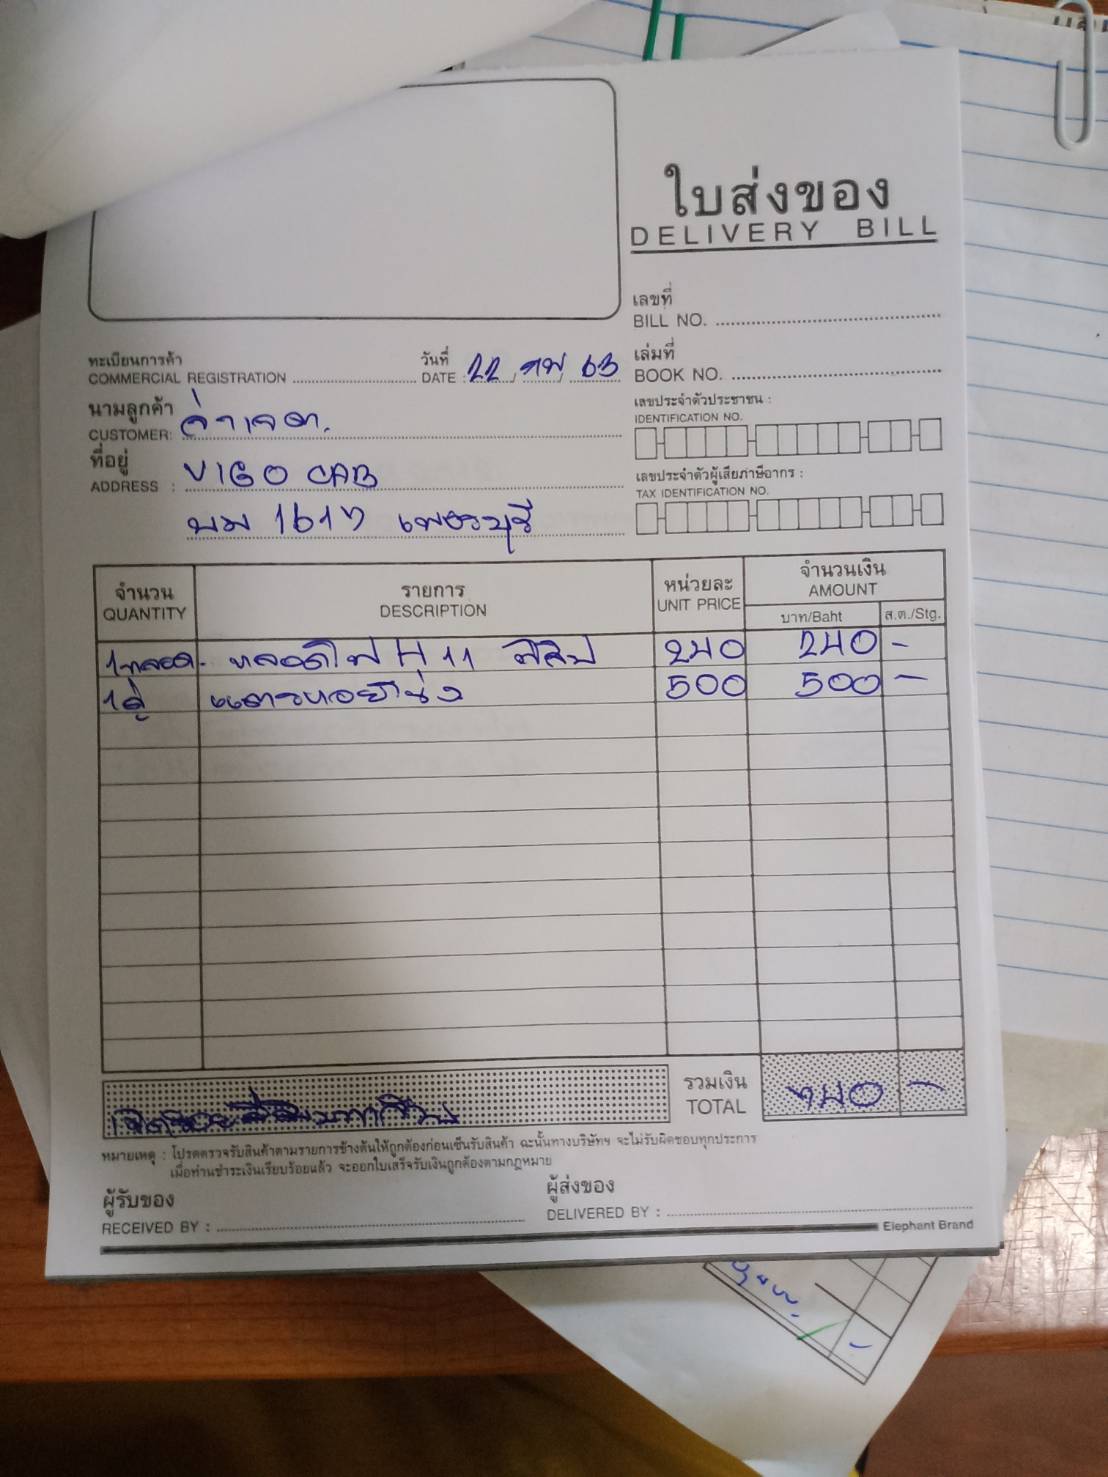 ใบส่งของ
DELIVERY BILL
เลขที่
BILL NO.
ทะเบียนการค้า
COMMERCIAL REGISTRATION
วันที่
DATE : 22 กพ 63
เล่มที่
BOOK NO.
นามลูกค้า
CUSTOMER: จ่าเจต.
เลขประจำตัวประชาชน :
IDENTIFICATION NO.
ที่อยู่
ADDRESS : VIGO CAB
บม 1617 เพชรบุรี
เลขประจำตัวผู้เสียภาษีอากร :
TAX IDENTIFICATION NO.
จำนวน รายการ หน่วยละ จำนวนเงิน
QUANTITY DESCRIPTION UNIT PRICE AMOUNT
บาท/Baht ส.ต./Stg.
1หลอด - หลอดไฟ H 11 240 240 -
1คู่ แตรหอยโข่ง 500 500 -
รวมเงิน
TOTAL 740 -
หมายเหตุ : โปรดตรวจรับสินค้าตามรายการข้างต้นให้ถูกต้องก่อนเซ็นรับสินค้า ฉะนั้นทางบริษัทฯ จะไม่รับผิดชอบทุกประการ
เมื่อท่านชำระเงินเรียบร้อยแล้ว จะออกใบเสร็จรับเงินถูกต้องตามกฎหมาย
ผู้รับของ
RECEIVED BY :
ผู้ส่งของ
DELIVERED BY :
Elephant Brand